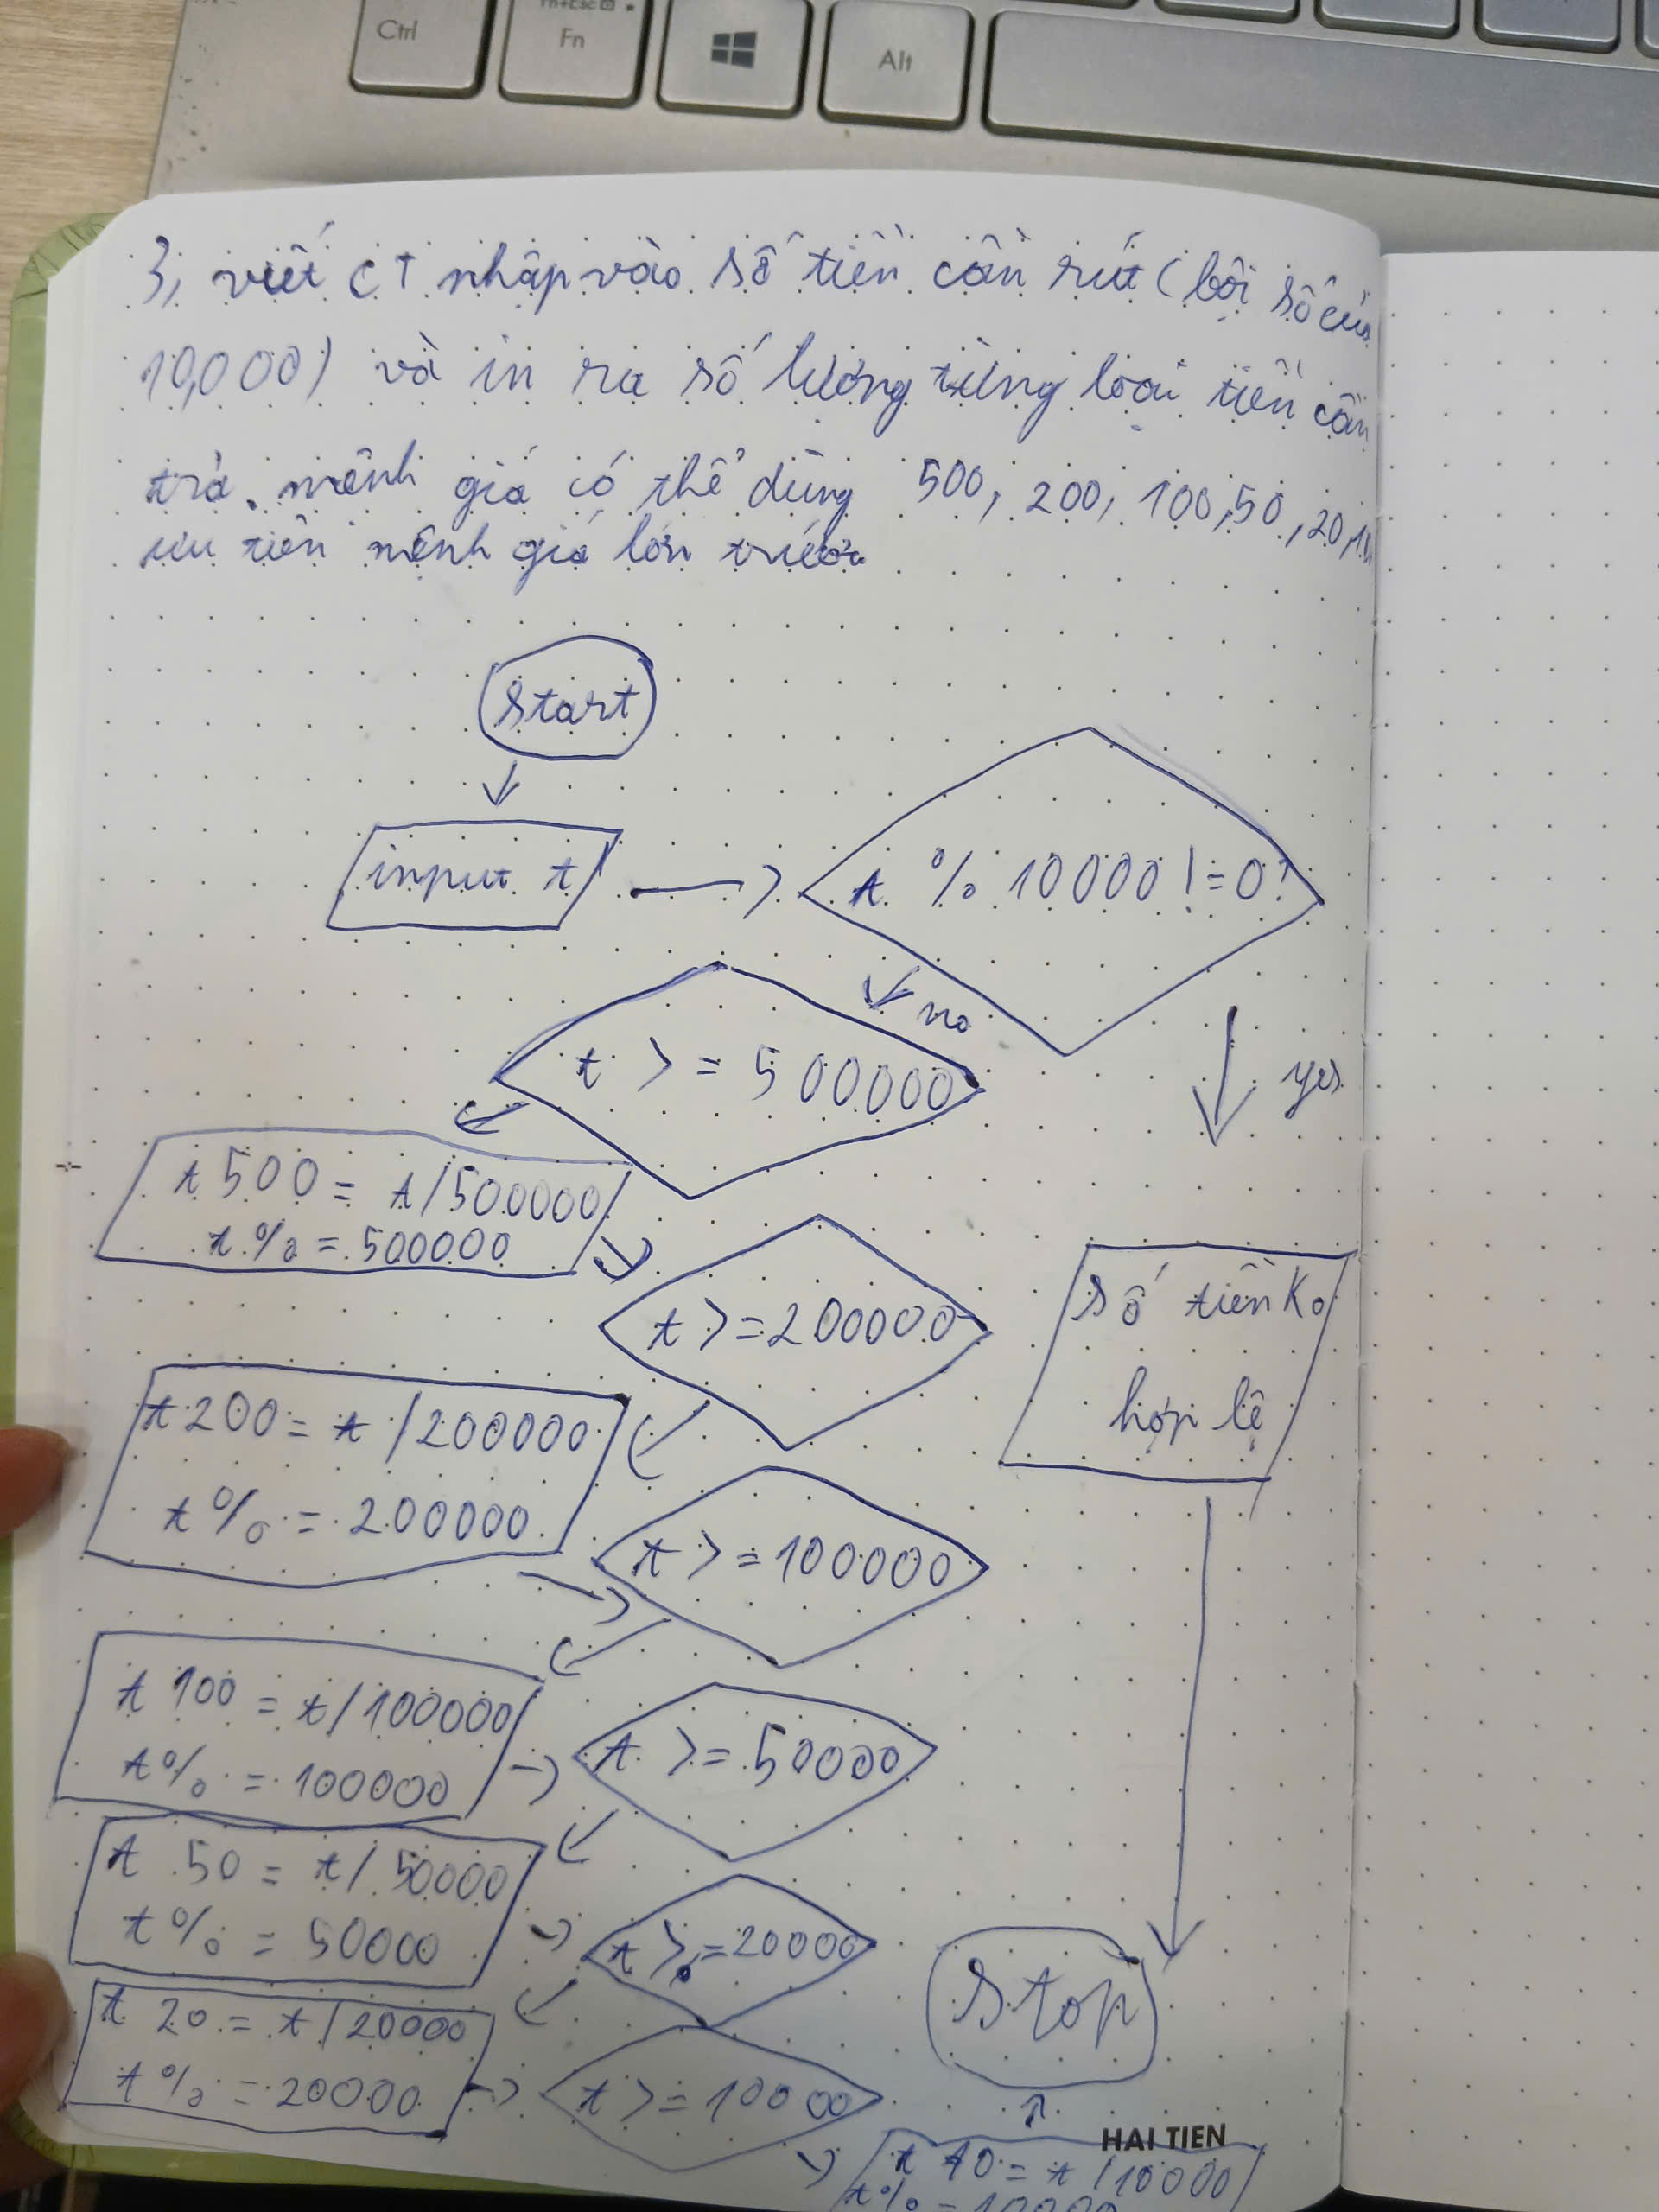 Ctrl
Fn+Esc
Fn
Alt
3, viết CT nhập vào số tiền cần rút (bội số của
10,000) và in ra số lượng từng loại tiền cần
trả. mệnh giá có thể dùng 500, 200, 100, 50, 20, 10
ưu tiên mệnh giá lớn trước
start
input t
t % 10000 != 0?
no
yes
t >= 500000
t500 = t/500000
t % = 500000
t >= 200000
số tiền ko
hợp lệ
t200 = t/200000
t % = 200000
t >= 100000
t100 = t/100000
t % = 100000
t >= 50000
t50 = t/50000
t % = 50000
t >= 20000
stop
t20 = t/20000
t % = 20000
t >= 10000
HAI TIEN
t10 = t/10000
t % = 10000